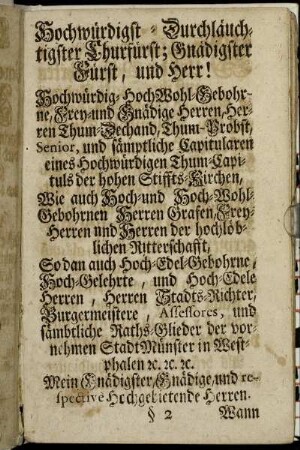 Hochwürdigst-Durchläuch-
tigster Churfürst; Gnädigster
Fürst, und Herr!
Hochwürdig-HochWohl-Gebohr-
ne, Frey- und Gnädige Herren, Her-
ren Thum-Dechand, Thum-Probst,
Senior, und sämptliche Capitularen
eines Hochwürdigen Thum-Capi-
tuls der hohen Stiffts-Kirchen,
Wie auch Hoch- und Hoch-Wohl-
Gebohrnen Herren Grafen, Frey-
Herren und Herren der hochlöb-
lichen Ritterschafft,
So dan auch Hoch-Edel-Gebohrne,
Hoch-Gelehrte, und Hoch-Edele
Herren, Herren Stadts-Richter,
Burgermeistere, Assessores, und
sämbtliche Raths-Glieder der vor-
nehmen Stadt Münster in West-
phalen ꝛc. ꝛc. ꝛc.
Mein Gnädigster, Gnädige, und re-
spective Hochgebietende Herren.
§ 2 Wann